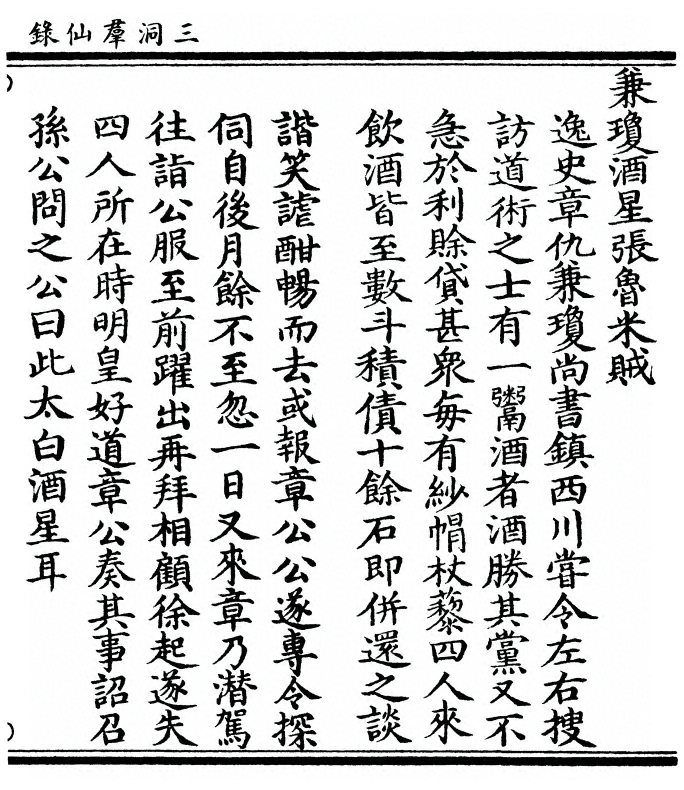 三洞羣仙錄
兼瓊酒星張魯米賊
逸史章仇兼瓊尚書鎮西川甞令左右搜
訪道術之士有一鬻酒者酒勝其黨又不
急於利賒貸甚衆每有紗帽杖藜四人來
飲酒皆至數斗積債十餘石即併還之談
諧笑謔酣暢而去或報章公公遂專令探
伺自後月餘不至忽一日又來章乃潛駕
往詣公服至前躍出再拜相顧徐起遂失
四人所在時明皇好道章公奏其事詔召
孫公問之公曰此太白酒星耳